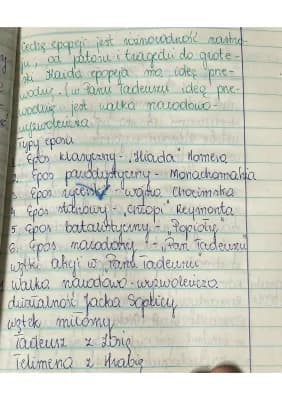 Cechą epopeji jest różnorodność nastro-
ju, od patosu i tragedii do grote-
ski Każda epopeja ma ideę prze-
wodnią (w Panu Tadeuszu ideą prze-
wodnią jest walka narodowo-
wyzwoleńcza
Typy eposu
Epos klasyczny - "Iliada" Homera
2. Epos parodystyczny - Monachomachia
Epos rycerski - wojna Chocimska
4. Epos stanowy - "Chłopi" Reymonta
5. Epos batalistyczny - "Popioły"
6. Epos narodowy - "Pan Tadeusz"
wątki akcji w "Panu Tadeuszu"
Walka narodowo-wyzwoleńcza
działalność Jacka Soplicy
wątek miłosny
Tadeusz z Zosią
Telimena z Hrabią